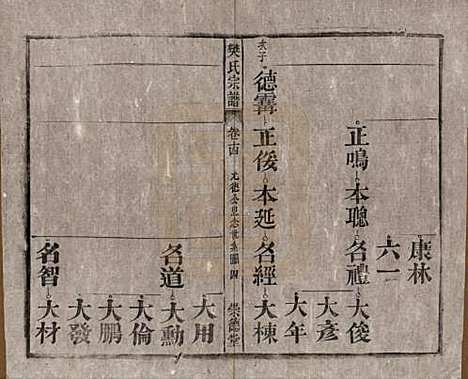 康林
六一
正鳴 本聰 名禮 大俊
大彥
大年
次子 德霱 正俊 本延 名經 大棟
樊氏宗譜 卷十四 元德公昆 世系圖四 崇德堂
大用
名道 大勳
大倫
大鵬
大發
名智 大材